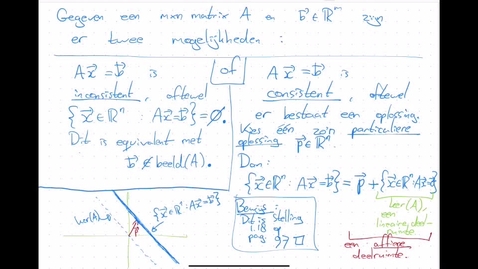 Gegeven een m×n matrix A en b⃗ ∈ ℝᵐ zijn
er twee mogelijkheden :
Ax⃗ = b⃗ is
inconsistent, oftewel
{x⃗ ∈ ℝⁿ : Ax⃗ = b⃗} = ∅.
Dit is equivalent met
b⃗ ∉ beeld(A).
of
Ax⃗ = b⃗ is
consistent, oftewel
er bestaat een oplossing.
Kies één zo'n particuliere
oplossing p⃗ ∈ ℝⁿ.
Dan:
{x⃗ ∈ ℝⁿ : Ax⃗ = b⃗} = p⃗ + {x⃗ ∈ ℝⁿ: Ax⃗ = 0⃗}
ker(A),
een
lineaire deel-
ruimte
een affiene
deelruimte.
ker(A)
p⃗
{x⃗ ∈ ℝⁿ : Ax⃗ = b⃗}
Bewijs:
Dit is stelling
1.18 op
pag. 97 □